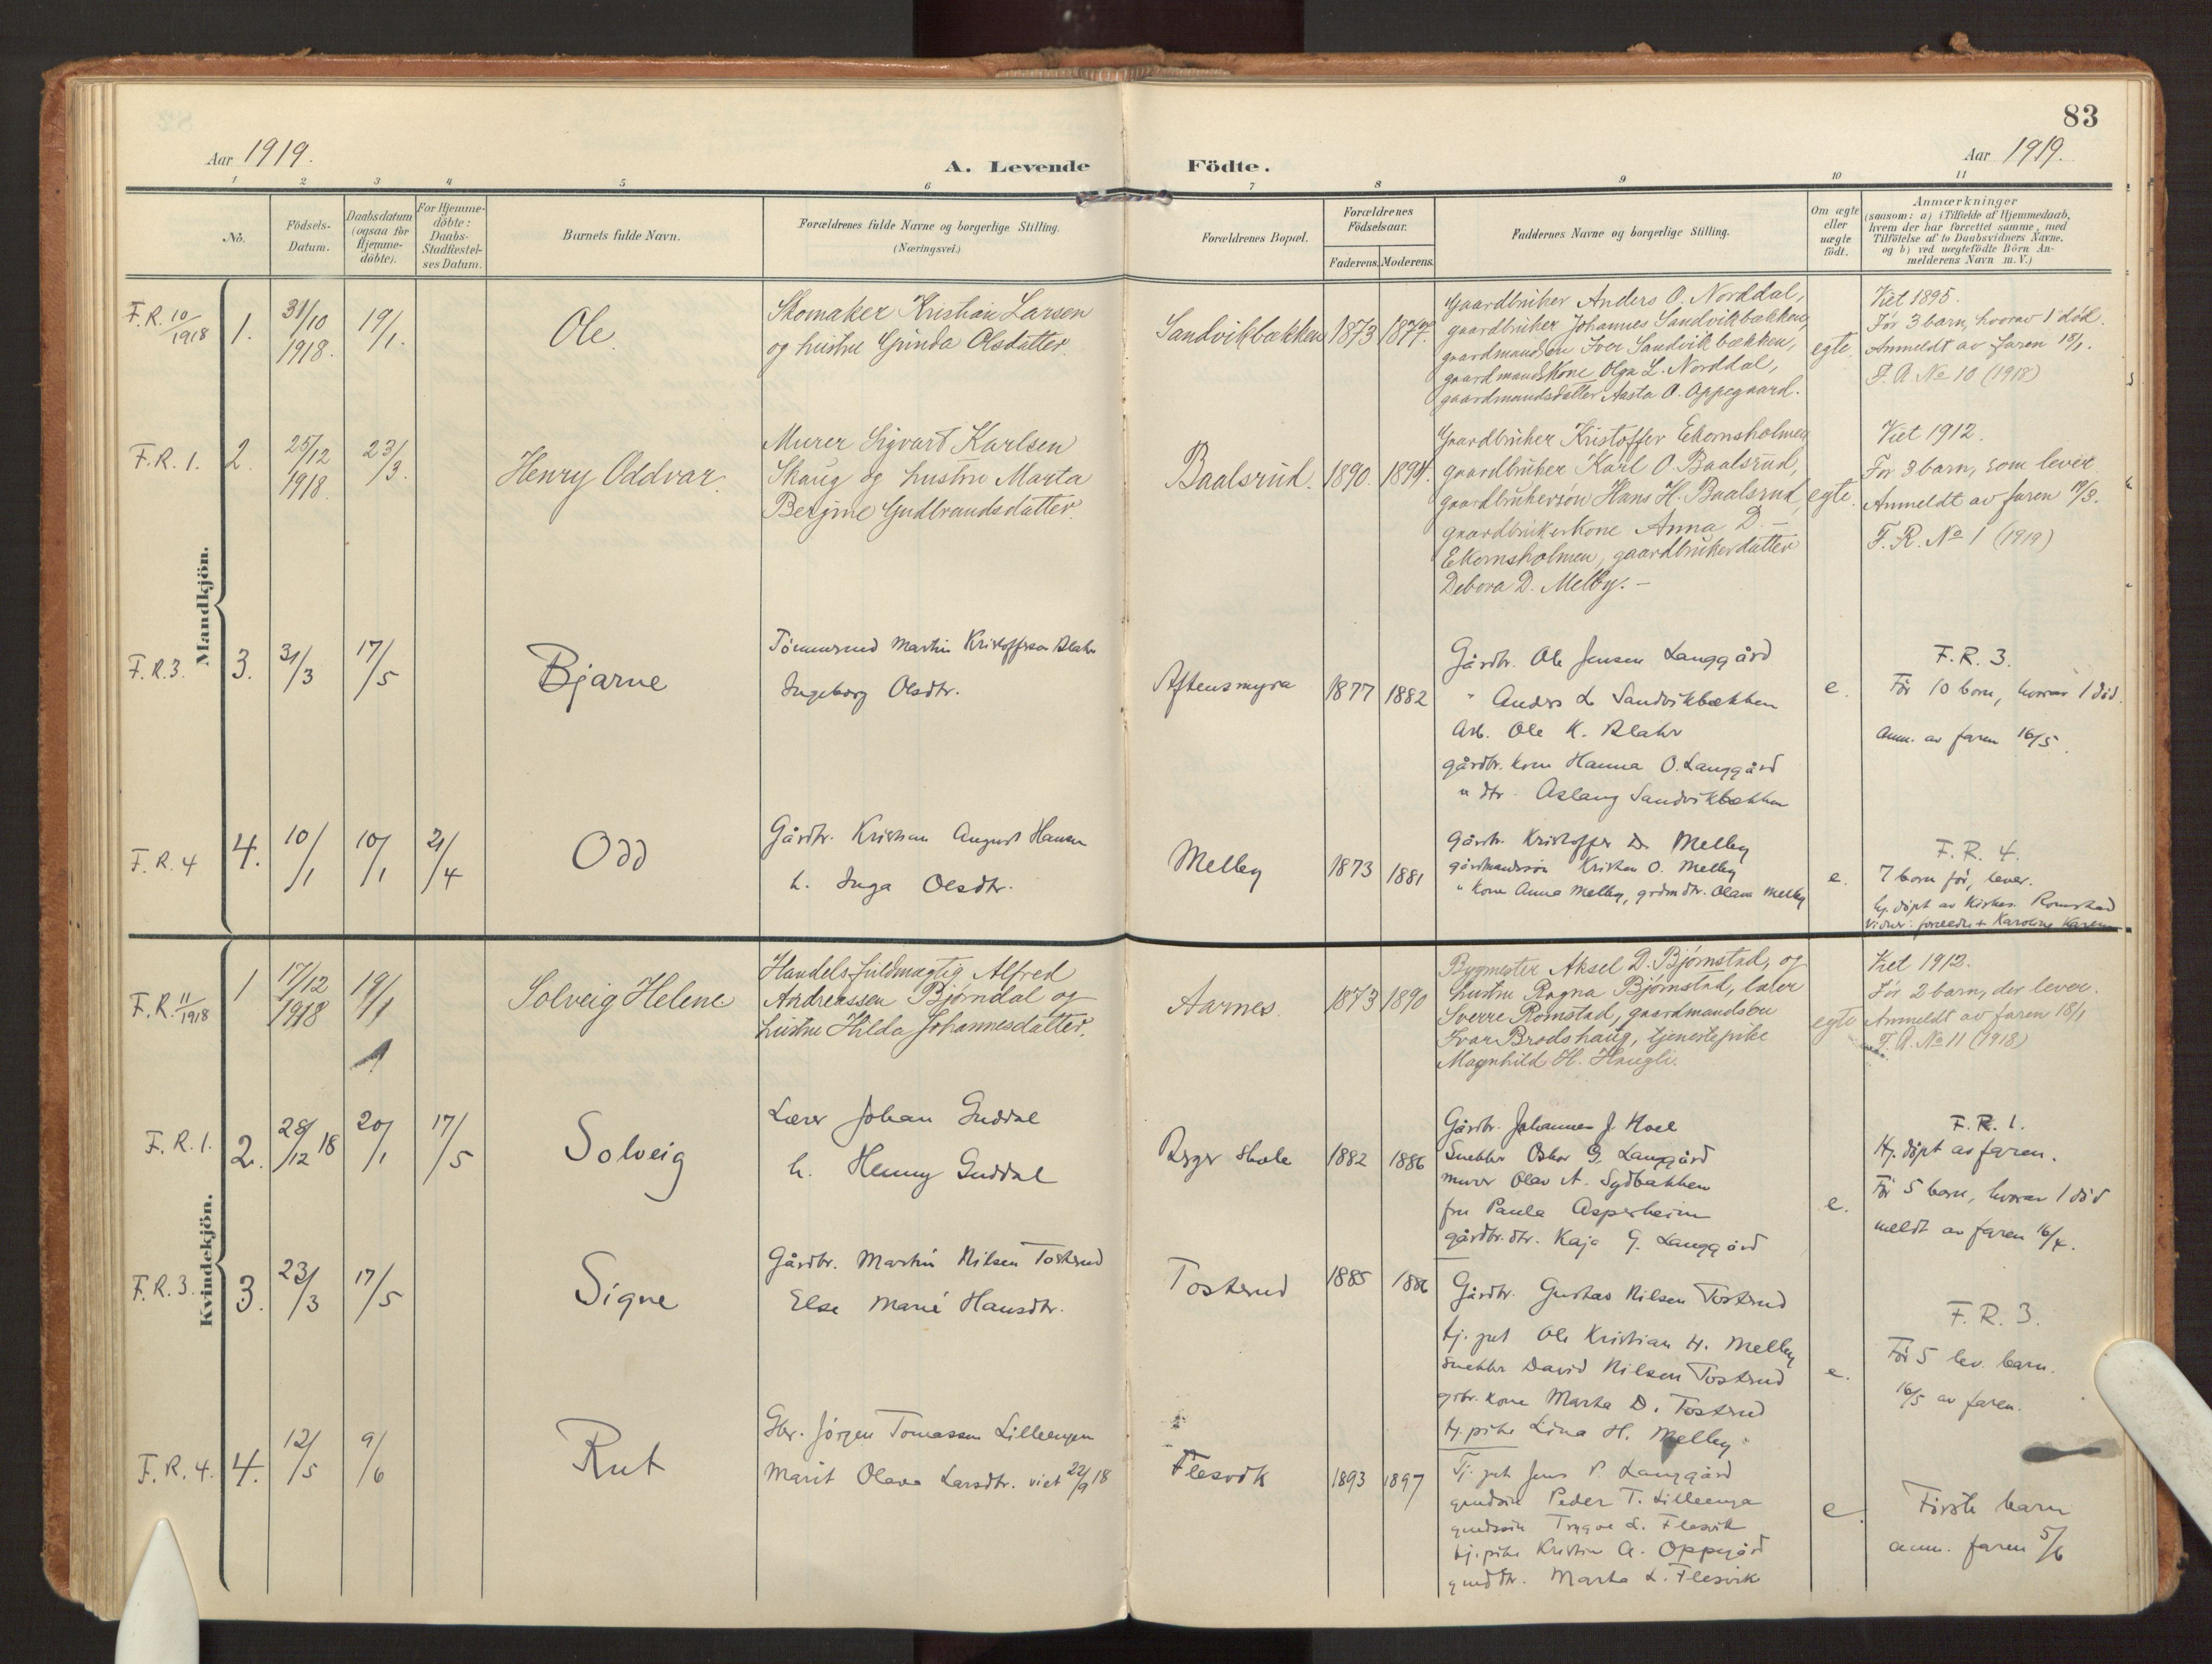 83
Aar 1919.
A. Levende Födte.
Aar 1919.
1 2 3 4 5 6 7 8 9 10 11
No.
Födsels-Datum.
Daabsdatum (ogsaa for Hjemme-döbte).
For Hjemme-döbte: Daabs-Stadfæstel-ses Datum.
Barnets fulde Navn.
Forældrenes fulde Navne og borgerlige Stilling.
(Næringsvei.)
Forældrenes Bopæl.
Forældrenes Födselsaar.
Faderens. Moderens.
Faddernes Navne og borgerlige Stilling.
Om ægte eller uægte födt.
Anmærkninger
(saasom: a) i Tilfælde af Hjemmedaab,
hvem der har forrettet samme, med
Tilföielse af to Daabsvidners Navne,
og b) ved uægtefödte Börn An-
melderens Navn m. V.)
Mandkjön.
F.R. 10/1918
1.
31/10 1918.
19/1.
Ole.
Skomaker Kristian Larsen
og hustru Gunda Olsdatter.
Sandvikbækken
1873
Gaardbruker Anders O. Norddal,
gaardbruker Johannes Sandvikbækken,
gaardmandsøn Iver Sandvikbækken,
gaardmandskone Olga L. Norddal,
gaardmandsdatter Aasta O. Oppegaard.
egte.
Viet 1895.
Før 3 barn, hvorav 1 død.
Anmeldt av faren 18/1.
F.R. No 10 (1918)
F.R. 1.
2.
25/12 1918.
23/3.
Henry Oddvar.
Murer Sigvart Karlsen
Skaug og hustru Marta
Bergine Gudbrandsdatter.
Baalsrud.
1890. 1894.
Gaardbruker Kristoffer Ekornsholmen
gaardbruker Karl O. Baalsrud,
gaardbrukersøn Hans H. Baalsrud,
gaardbrukerkone Anna D. –
Ekornsholmen, gaardbrukerdatter
Debora D. Melby. –
egte.
Viet 1912.
Før 3 barn, som lever.
Anmeldt av faren 19/3.
F.R. No 1 (1919)
F.R. 3.
3.
31/3
17/5
Bjarne
Martin Kristoffersen
Ingeborg Olsdtr.
Aftensmyra
1877 1882
Gårdbr. Ole Jensen Langgård
" Anders L. Sandvikbækken
Arb. Ole K.
gårdbr. kone Hanna O. Langgård
" dtr. Aslaug Sandvikbækken
e.
F.R. 3.
Før 10 born, hvorav 1 død.
Anm. av faren 16/5.
F.R. 4
4.
10/1
10/1
21/4
Odd
Gårdbr. Kristian August Hansen
h. Inga Olsdtr.
Melby
1873 1881
Gårdbr. Kristoffer D. Melby
gårdmandssøn Kristen O. Melby
" kone Anna Melby, grdm dtr. Olava Melby
e.
F.R. 4.
7 born før, lever.
Hj. døpt av Kirkes. Romstad
Vidner: foreldre + Karoline
Kvindekjön.
F.R. 11/1918
1
17/12 1918
19/1
Solveig Helene
Handelsfuldmægtig Alfred
Andreassen Bjørndal og
hustru Hilda Johannesdatter.
Aarnes.
1873 1890
Bygmester Aksel D. Bjørnstad, og
hustru Ragna Bjørnstad, lærer
Sverre Romstad, gaardmandsøn
Ivar Brodshaug, tjenestepike
Magnhild H. Haugli.
egte
Viet 1912.
Før 2 barn, der lever.
Anmeldt av faren 18/1
F.R. No 11 (1918)
F.R. 1.
2.
28/12 18
20/1
17/5
Solveig
Lærer Johan Guddal
h. Henny Guddal
Berger skole
1882 1886
Gårdbr. Johannes J. Hoel
Snekker Oskar G. Langgård
murer Olav A. Sydbakken
fru Paula Asperheim
gårdbr. dtr. Kaja G. Langgård
e.
F.R. 1.
Hj. døpt av faren.
Før 5 barn, hvorav 1 død
meldt av faren 16/4.
F.R. 3.
3.
23/3
17/5
Signe
Gårdbr. Martin Nilsen Tosterud
Else Marie Hansdtr.
Tosterud
1885 1886
Gårdbr. Gustav Nilsen Tostrud
tj. gut Ole Kristian H. Melby
snekker David Nilsen Tostrud
grbr. kone Marta D. Tostrud
tj. pike Lina H. Melby
e.
F.R. 3.
Før 5 lev. barn.
16/5 av faren.
F.R. 4.
4.
12/5
9/6
Rut
Gbr. Jörgen Tomassen Lilleengen
Marit Olava Larsdtr. viet 22/9 18
Flesvik
1893 1897
Tj. gut Jens P. Langgård
gmdsøn Peder T. Lilleenga
gmdssøn Trygve L. Flesvik
tj. pike Kristin A. Oppegård
gmd dtr. Marta L. Flesvik
e.
Første barn
anm. faren 5/6